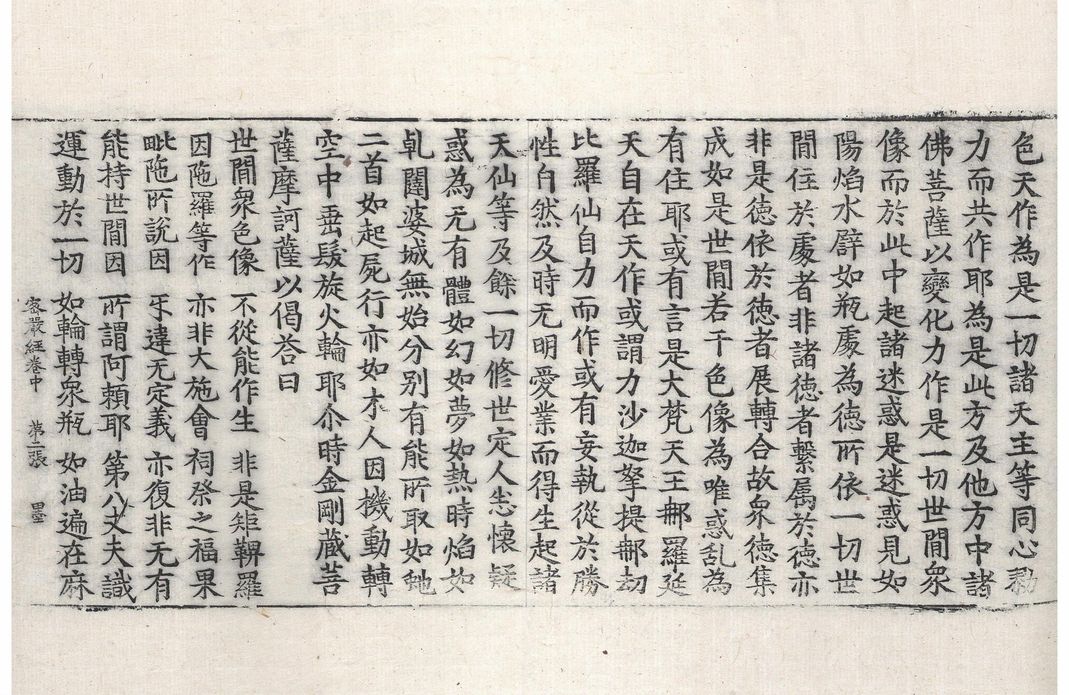 色天作為是一切諸天主等同心勠
力而共作耶為是此方及他方中諸
佛菩薩以變化力作是一切世間衆
像而於此中起諸迷惑是迷惑見如
陽焰水譬如瓶處為德所依一切世
間住於處者非諸德者繫属於德亦
非是德依於德者展轉合故衆德集
成如是世間若干色像為唯惑乱為
有住耶或有言是大梵天王郍羅延
天自在天作或謂力沙迦拏提郍劫
比羅仙自力而作或有妄執從於勝
性自然及時无明愛業而得生起諸
天仙等及餘一切修世定人悉懷疑
惑為无有體如幻如夢如熱時焰如
乹闥婆城無始分别有能所取如虵
二首如起屍行亦如木人因機動轉
空中垂髮旋火輪耶尒時金剛藏菩
薩摩訶薩以偈荅曰
世間衆色像 不從能作生 非是矩鞞羅
因陁羅等作 亦非大施會 祠祭之福果
毗陁所說因 互違无定義 亦復非无有
能持世間因 所謂阿頼耶 第八丈夫識
運動於一切 如輪轉衆瓶 如油遍在麻
密嚴經卷中 第二張 墨